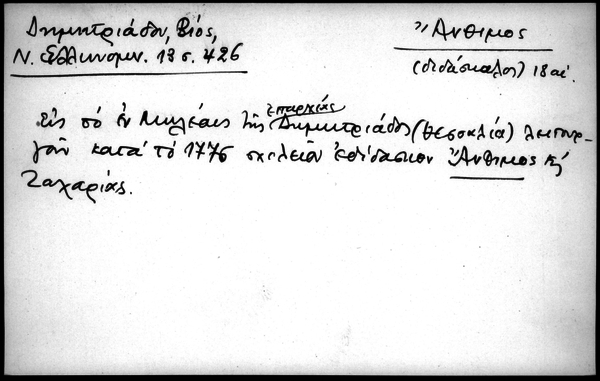 Δημητριάδου, Βίος,
Ν. Ἑλληνομν. 13 σ. 426
Ἄνθιμος
(διδάσκαλος) 18 αἰ.
Εἰς τό ἐν Μηλέαις τῆς ἐπαρχίας Δημητριάδος (Θεσσαλία) λειτουρ-
γοῦν κατά τό 1776 σχολεῖον ἐδίδασκον Ἄνθιμος κ
Ζαχαρίας.